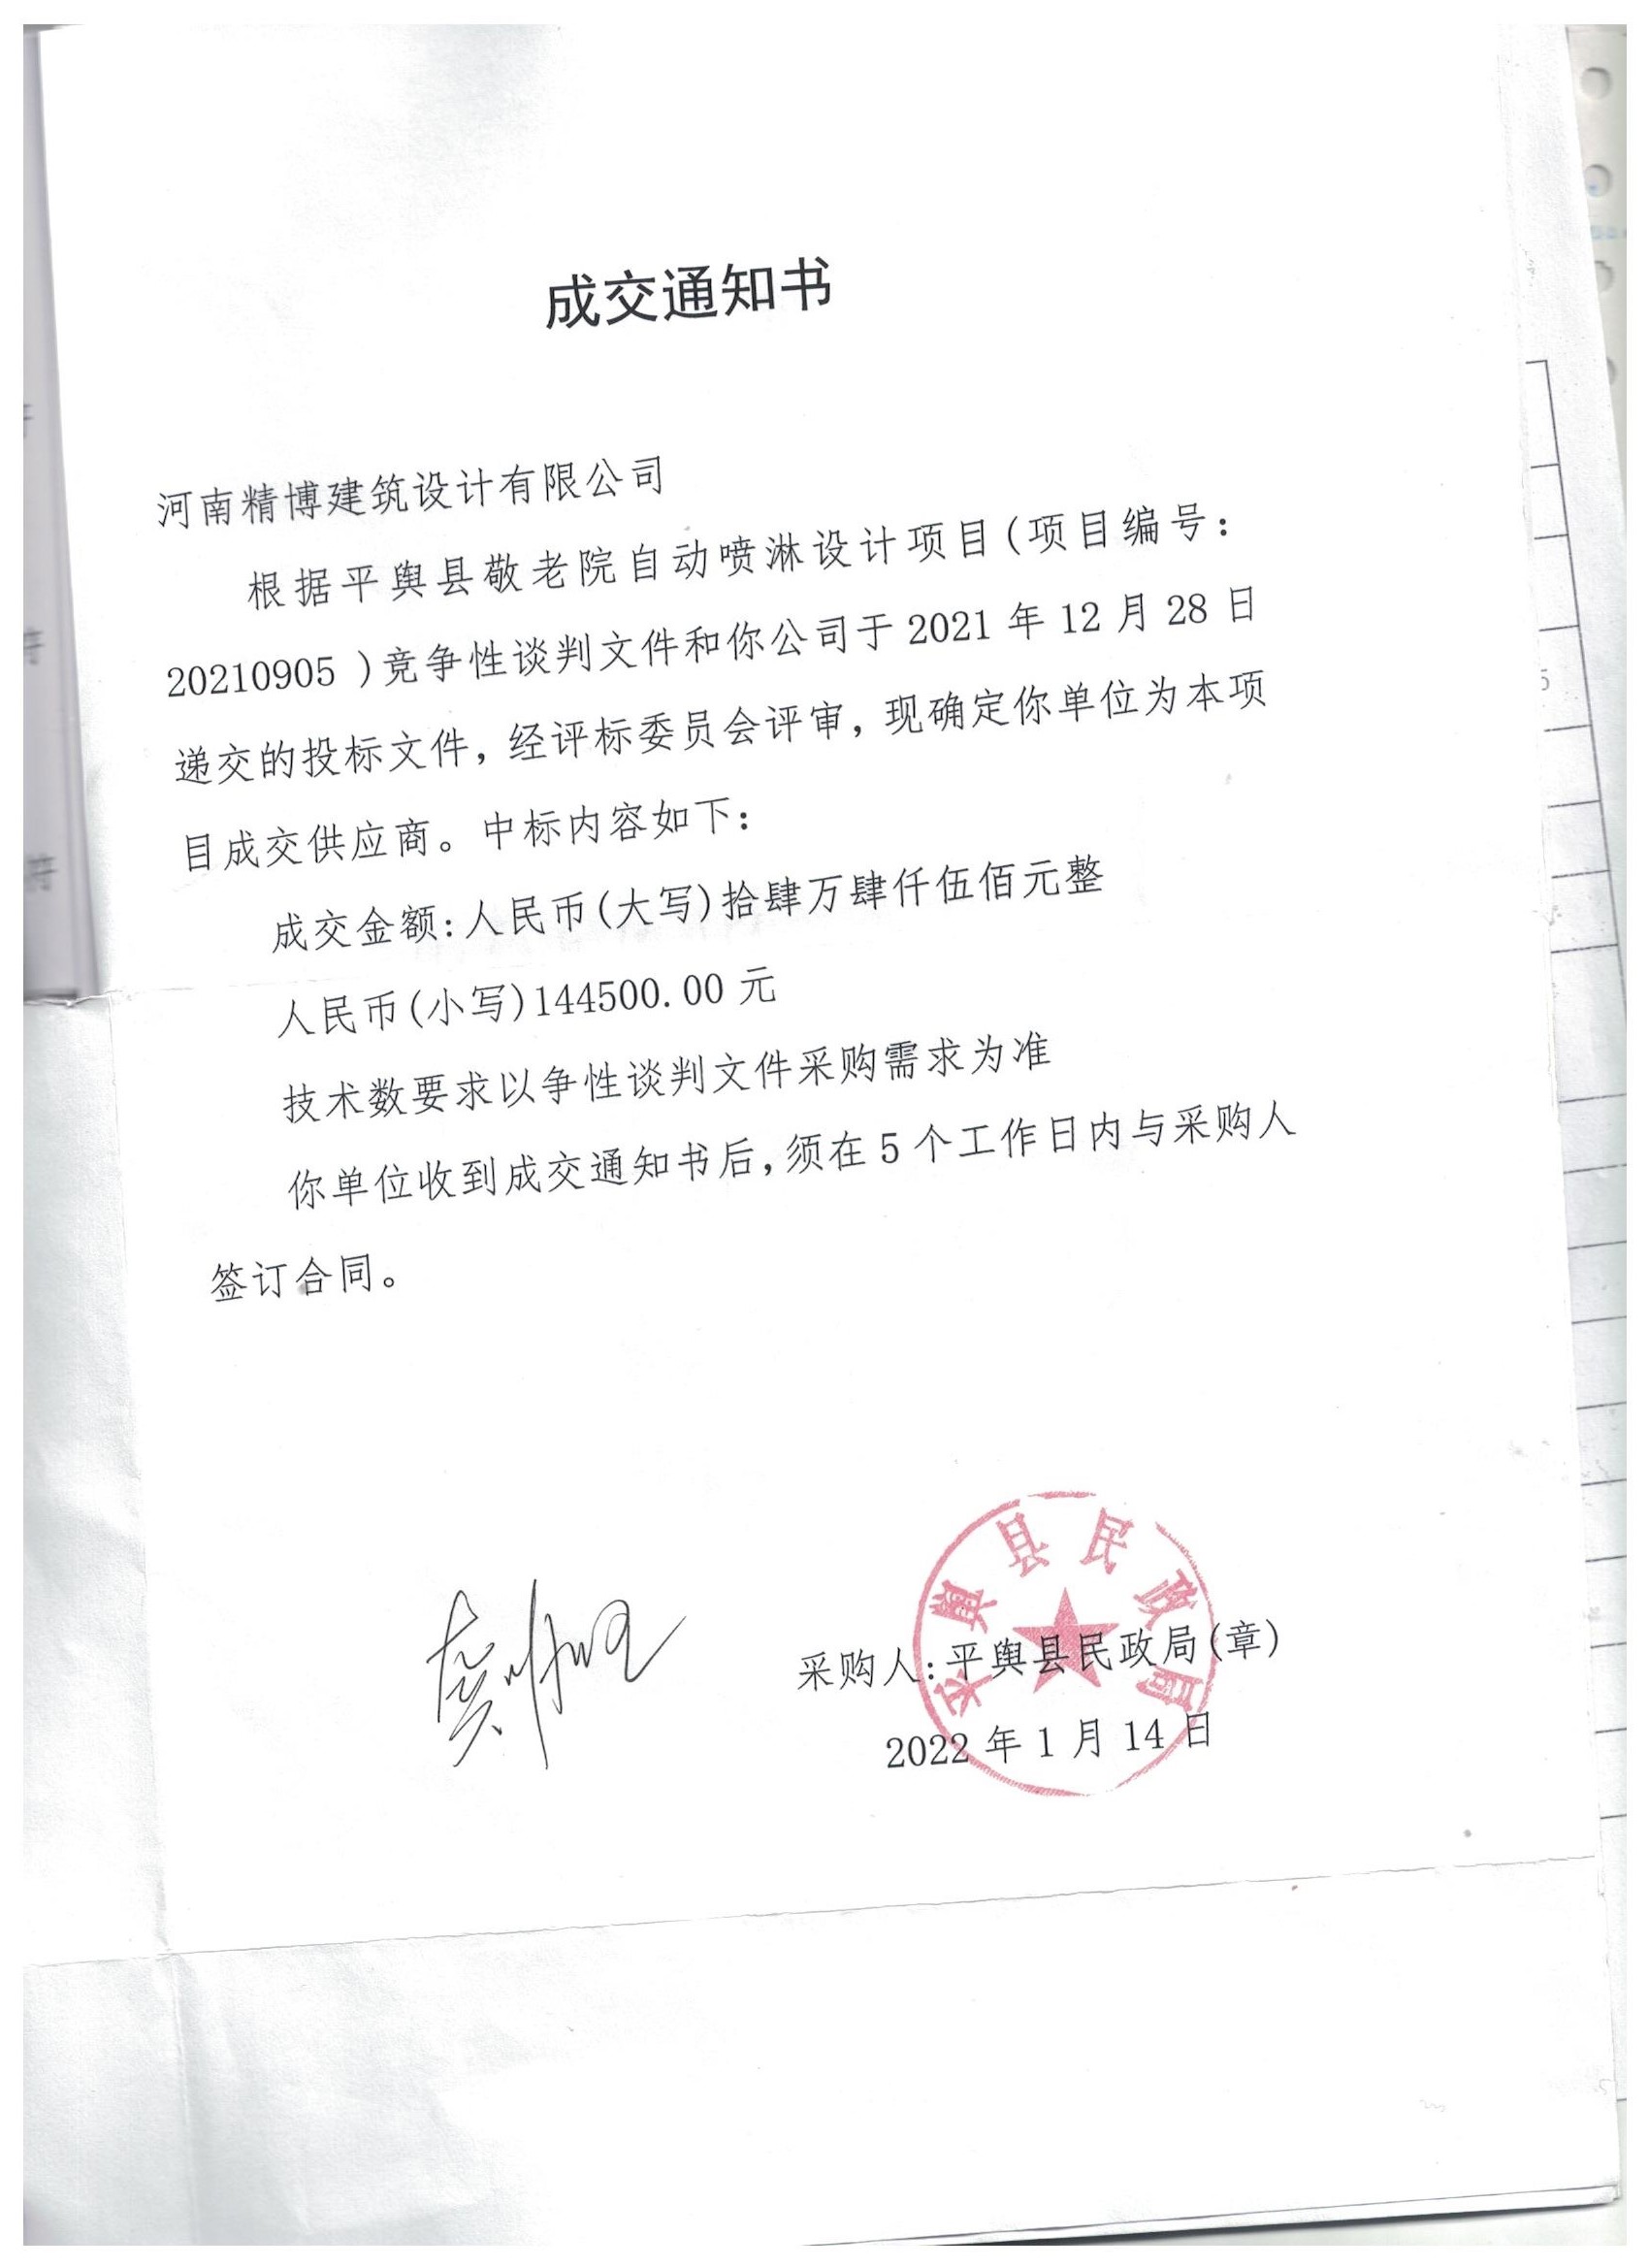 成交通知书
河南精博建筑设计有限公司
根据平舆县敬老院自动喷淋设计项目(项目编号：
20210905 )竞争性谈判文件和你公司于 2021 年 12 月 28 日
递交的投标文件，经评标委员会评审，现确定你单位为本项
目成交供应商。中标内容如下：
成交金额:人民币(大写)拾肆万肆仟伍佰元整
人民币(小写)144500.00 元
技术数要求以争性谈判文件采购需求为准
你单位收到成交通知书后,须在 5 个工作日内与采购人
签订合同。
平舆县民政局
采购人:平舆县民政局(章)
2022 年 1 月 14 日